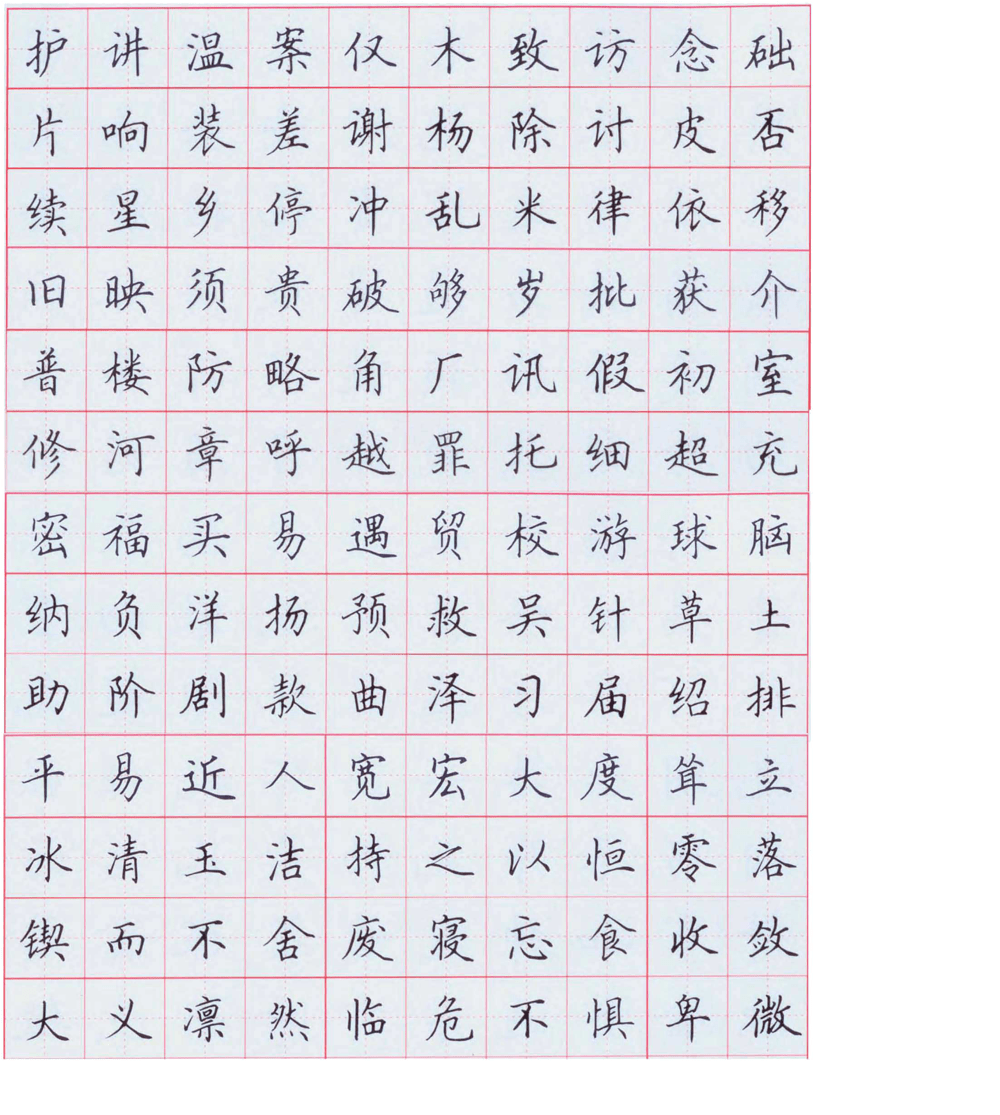 护讲温案仅木致访念础
片响装差谢杨除讨皮否
续星乡停冲乱米律依移
旧映须贵破够岁批获介
普楼防略角厂讯假初室
修河章呼越罪托细超充
密福买易遇贸校游球脑
纳负洋扬预救吴针草土
助阶剧款曲泽习届绍排
平易近人宽宏大度耸立
冰清玉洁持之以恒零落
锲而不舍废寝忘食收敛
大义凛然临危不惧卑微